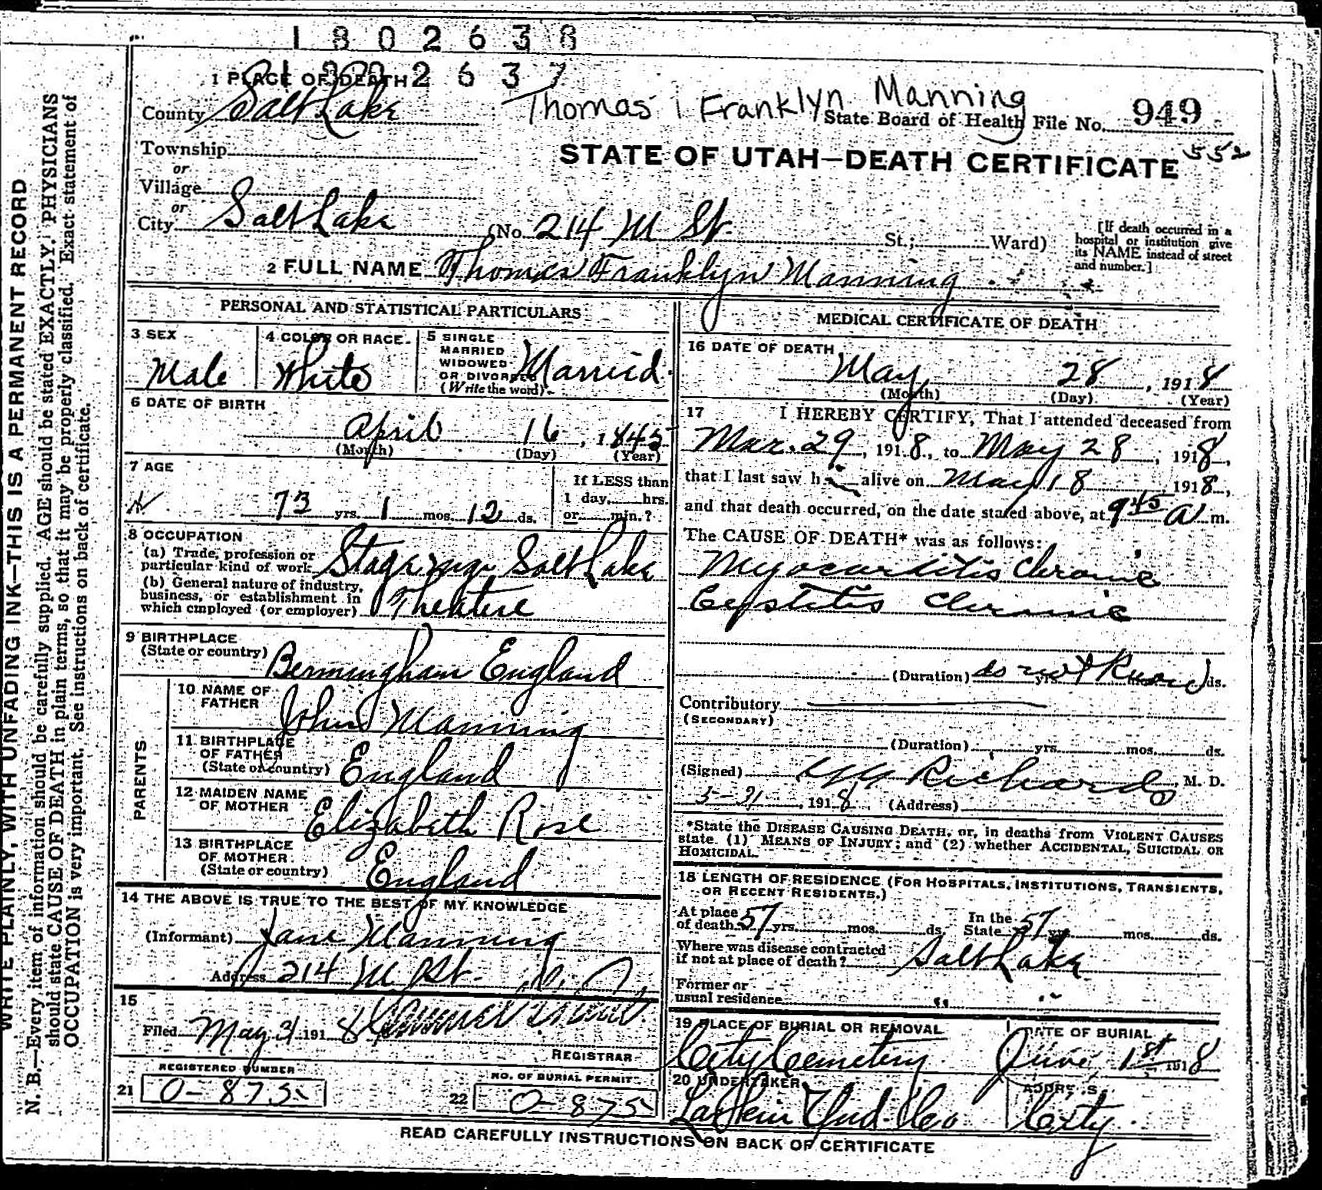 1802638
1802637
1 PLACE OF DEATH
Thomas Franklyn Manning
County Salt Lake
State Board of Health File No. 949
552
Township
STATE OF UTAH—DEATH CERTIFICATE
or
Village
or
City Salt Lake (No. 214 M St. St.; Ward)
[If death occurred in a hospital or institution give its NAME instead of street and number.]
2 FULL NAME Thomas Franklyn Manning
PERSONAL AND STATISTICAL PARTICULARS
3 SEX
Male
4 COLOR OR RACE
White
5 SINGLE
MARRIED
WIDOWED
OR DIVORCED
(Write the word)
Married
6 DATE OF BIRTH
April 16, 1845
(Month) (Day) (Year)
7 AGE
73 yrs. 1 mos. 12 ds.
If LESS than
1 day, hrs.
or min.?
8 OCCUPATION
(a) Trade, profession or
particular kind of work Salt Lake
(b) General nature of industry,
business, or establishment in
which employed (or employer) Theatre
9 BIRTHPLACE
(State or country) Bermingham England
PARENTS
10 NAME OF
FATHER John Manning
11 BIRTHPLACE
OF FATHER
(State or country) England
12 MAIDEN NAME
OF MOTHER Elizabeth Rose
13 BIRTHPLACE
OF MOTHER
(State or country) England
14 THE ABOVE IS TRUE TO THE BEST OF MY KNOWLEDGE
(Informant) Jane Manning
Address 214 M St.
15
Filed May 31 1918
REGISTRAR
REGISTERED NUMBER
21 0-875
NO. OF BURIAL PERMIT
22 0-875
MEDICAL CERTIFICATE OF DEATH
16 DATE OF DEATH
May 28, 1918
(Month) (Day) (Year)
17 I HEREBY CERTIFY, That I attended deceased from
Mar. 29, 1918, to May 28, 1918,
that I last saw him alive on May 18 1918,
and that death occurred, on the date stated above, at 9 45 a m.
The CAUSE OF DEATH* was as follows:
Myocarditis Chronic
Cystitis Chronic
(Duration) do not Know yrs. mos. ds.
Contributory
(SECONDARY)
(Duration) yrs. mos. ds.
(Signed) Richards M. D.
5-31, 1918 (Address)
*State the DISEASE CAUSING DEATH, or, in deaths from VIOLENT CAUSES
state (1) MEANS OF INJURY; and (2) whether ACCIDENTAL, SUICIDAL OR
HOMICIDAL.
18 LENGTH OF RESIDENCE (FOR HOSPITALS, INSTITUTIONS, TRANSIENTS,
OR RECENT RESIDENTS.)
At place
of death 57 yrs. mos. ds. In the
State 57 yrs. mos. ds.
Where was disease contracted
if not at place of death? Salt Lake
Former or
usual residence " "
19 PLACE OF BURIAL OR REMOVAL
City Cemetery
DATE OF BURIAL
June, 1st 1918
20 UNDERTAKER
Larkin Und. Co
ADDRESS
City
READ CAREFULLY INSTRUCTIONS ON BACK OF CERTIFICATE
WRITE PLAINLY, WITH UNFADING INK—THIS IS A PERMANENT RECORD
N. B.—Every item of information should be carefully supplied. AGE should be stated EXACTLY. PHYSICIANS
should state CAUSE OF DEATH in plain terms, so that it may be properly classified. Exact statement of
OCCUPATION is very important. See instructions on back of certificate.